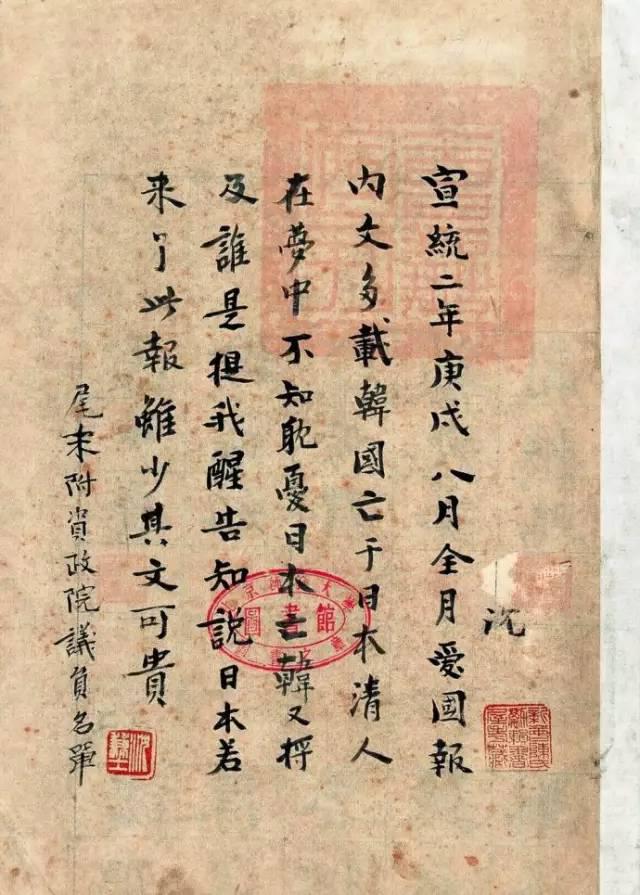 沈
宣統二年庚戌八月全月愛國報
内文多載韓國亡于日本清人
在夢中不知耽憂日本亡韓又将
及誰是提我醒告知説日本若
来了此報雖少其文可貴
尾末附資政院議負名單
圖書館